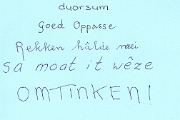 duorsum
goed Oppasse
Rekken hâlde mei
sa moat it wêze
OMTINKEN!